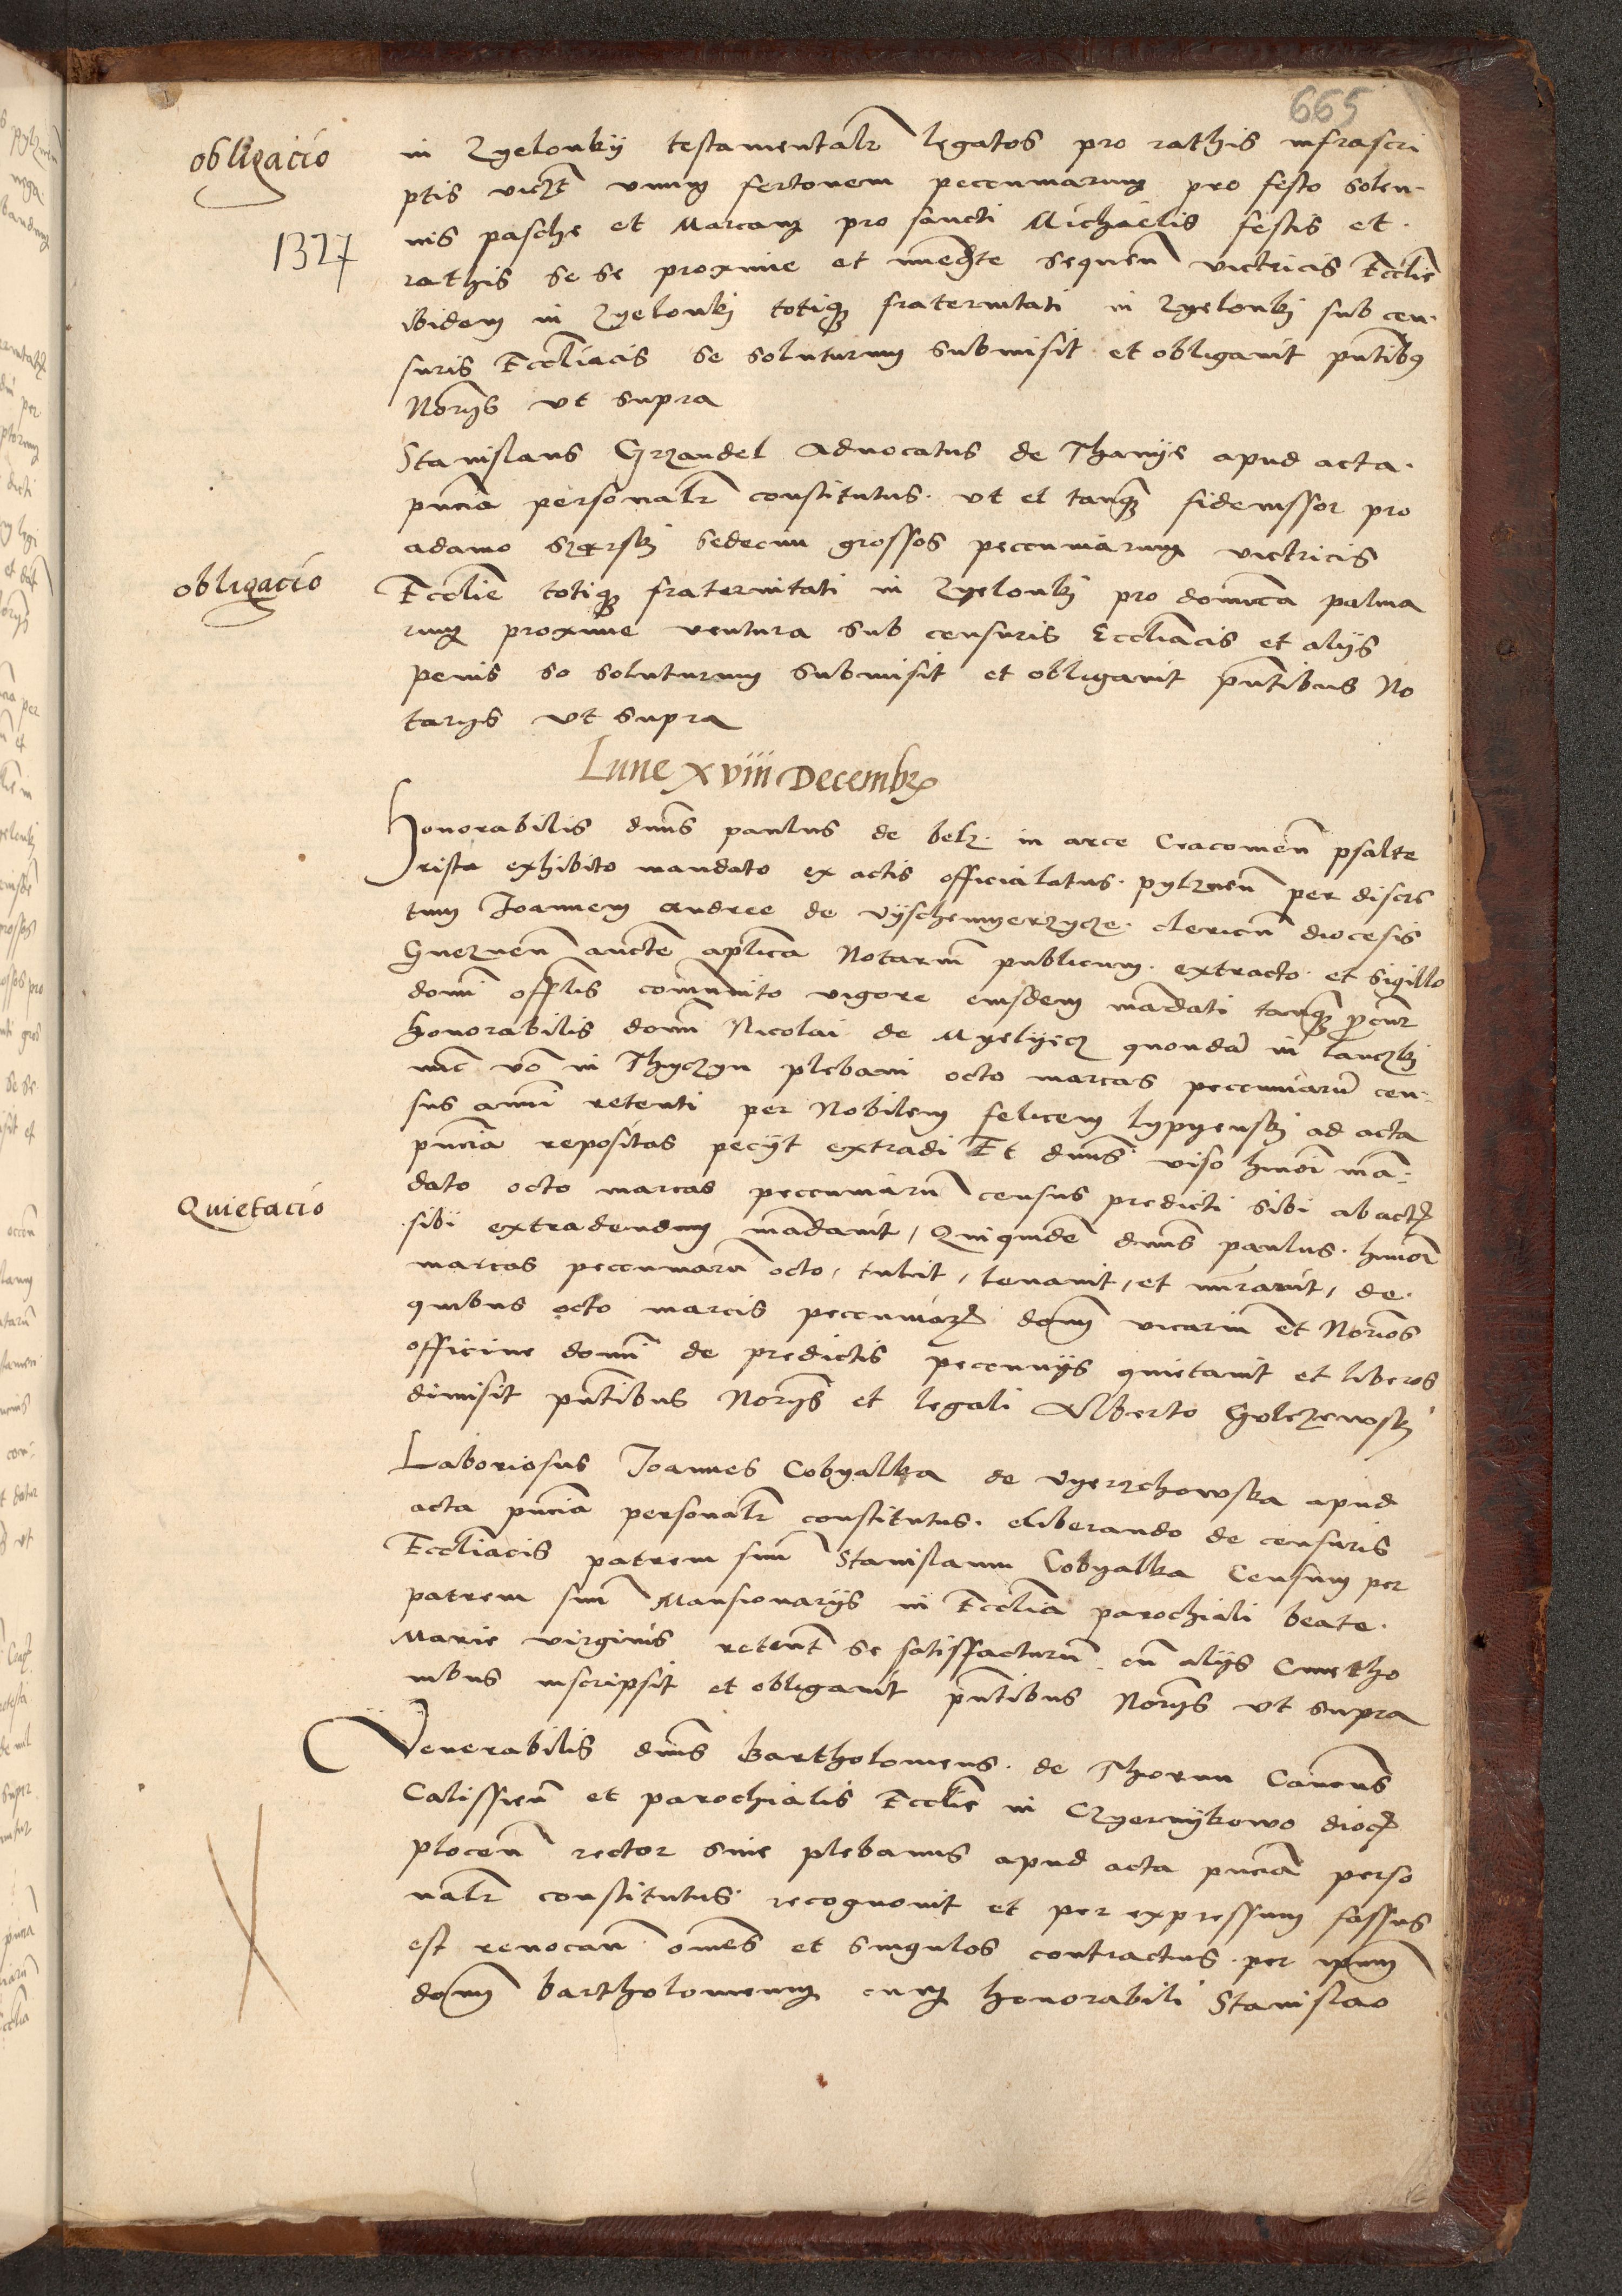 665
obligacio
in Zyelonky testamentalr legatos pro rathis infrascri
ptis vidzt vnum fertonem pecuniarum pro festo solen-
nis pasche et Marcam pro sancti Michaelis festis et
1327
rathis se se proxime et immediate sequen victricis Ecclie
ibidem in Zyelonky totiq fraternitati in Zyelonky sub cen-
suris Eccliacis se soluturum submisit et obligauit pntibus
Norys vt supra
Stanislaus Grzandel Aduocatus de Thanye apud acta
pncia personalr constitutus vt et tanq fideiussor pro
adamo sedecim grossos pecuniarum victricis
obligacio
Ecclie totiq fraternitati in Zyelonky pro dominica palma
rum proxime ventura sub censuris Eccliacis et alys
penis se soluturum submisit et obligauit pntibus No
tarys vt supra
Lune xviii Decembr
Honorabilis dnus paulus de belz in arce Cracouien psalte
rista exhibito mandato ex actis officialatus pylznen per discre
tum Joannem andree de clericum diocesis
Gneznen aucte aplica Notarium publicum extracto et sigillo
domi offlis communito vigore eiusdem mandati tanq procur
honorabilis domi Nicolai de Myelyecz quondam in lanczky
nunc vo in Thyczyn plebani octo marcas pecuniarum cen-
sus anni retenti per Nobilem felicem lypyensky ad acta
pncia repositas pecyt extradi Et dnus viso hmoi man-
Quietacio
dato octo marcas pecuniarum census predicti sibi ab actis
sibi extradendum mandauit, Quiquidem dnus paulus hmoi
marcas pecuniarum octo, tulit, leuauit, et numerauit, de
quibus octo marcis pecuniarum dom vicarium et Norios
officine domi de predictis pecunys quietauit et liberos
dimisit pntibus Norys et legali Alberto Golczewsky
Laboriosus Joannes Cobyalka de Vyerzchowska apud
acta pncia personalr constitutus eliberando de censuris
Eccliacis patrem suum Stanislaum Cobyalka Censum per
patrem suum Mansionarys in Ecclia parochiali beate
Marie virginis retent se satisfacturum cum alys Cmetho
nibus inscripsit et obligauit pntibus Norys vt supra
Venerabilis dnus Bartholomeus de Thorun Canonus
Calissien et parochialis Ecclie in Czernykowo dioc
plocen rector siue plebanus apud acta pncia perso
nalr constitutus recognouit et per expressum fassus
est reuocan omnes et singulos contractus per ipsum
dom bartholomeum cum honorabili Stanislao